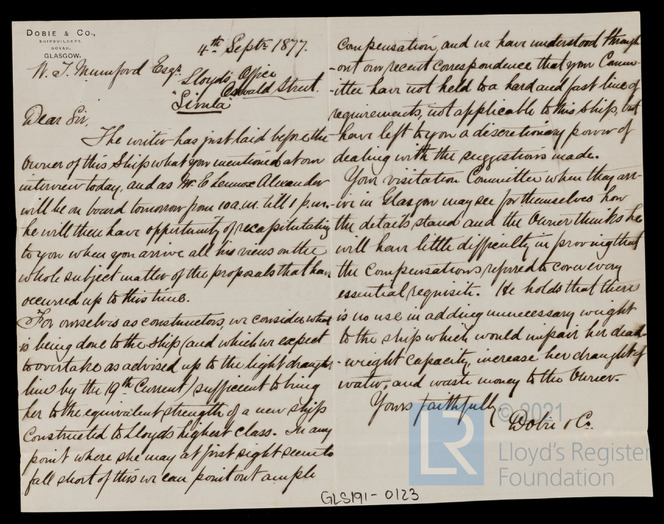 DOBIE & Co.,
SHIPBUILDERS,
GOVAN,
GLASGOW.
4th Septr 1877.
W. T. Mumford Esqr.
Lloyds' Office
Oswald Street.
"Simla"
Dear Sir,
The writer has just laid before the
Owner of this Ship what you mentioned at our
interview today, and as Mr E Lennox Alexander
will be on board tomorrow from 10 a.m. till 1 p.m.
he will then have opportunity of recapitulating
to you when you arrive all his views on the
whole subject matter of the proposals that have
occurred up to this time.
For ourselves as constructors, we consider what
is being done to the ship (and which we expect
to overtake as advised up to the light draught
line by the 19th Current) sufficient to bring
her to the equivalent strength of a new ship
constructed to Lloyds highest class. In any
point where she may at first sight seem to
fall short of this we can point out ample
compensation, and we have understood through-
-out our recent correspondence that your Comm-
-ittee have not held to a hard and fast line of
requirements, not applicable to this Ship, but
have left to you a discretionary power of
dealing with the suggestions made.
Your visitation Committee when they arr-
-ive in Glasgow may see for themselves how
the details stand and the Owner thinks he
will have little difficulty in proving that
the Compensations referred to cover every
essential requisite. He holds that there
is no use in adding unnecessary weight
to the ship which would impair her dead
-weight capacity, increase her draught of
water, and waste money to the Owner.
Yours faithfully
Dobie & Co.
GLS191-0123
© 2021
LR
Lloyd's Register
Foundation